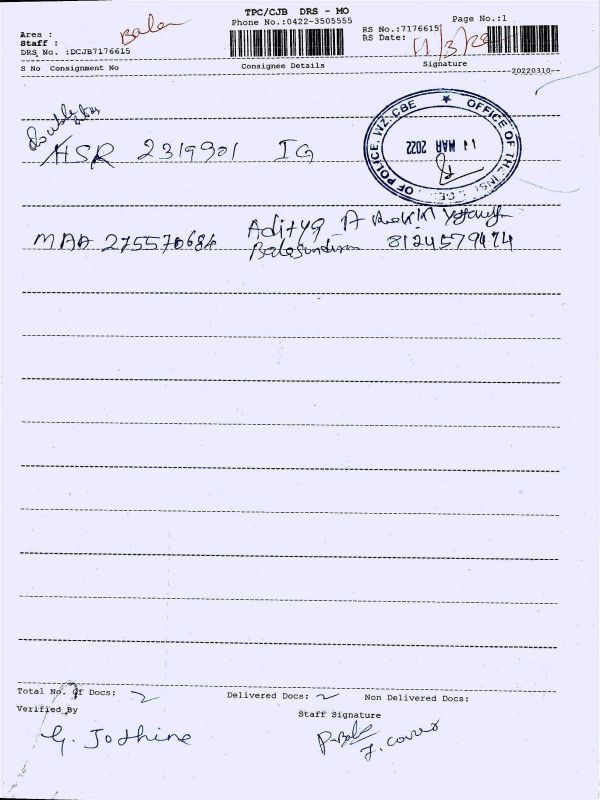 TPC/CJB DRS - MO
Phone No.:0422-3505555
Page No.:1
Area :
Staff :
Bala
DRS No. :DCJB7176615
RS No.:7176615
RS Date:
11/3/22
S No Consignment No
Consignee Details
Signature
20220310
HSR 2319901 IG
OFFICE OF THE INS
OF POLICE, WZ, CBE
11 MAR 2022
MAA 275570684
Aditya A
Balasundaram 8124579474
Total No. Of Docs: 2
Delivered Docs: 2
Non Delivered Docs:
Verified By
Staff Signature
G. Jothine
P. Bala